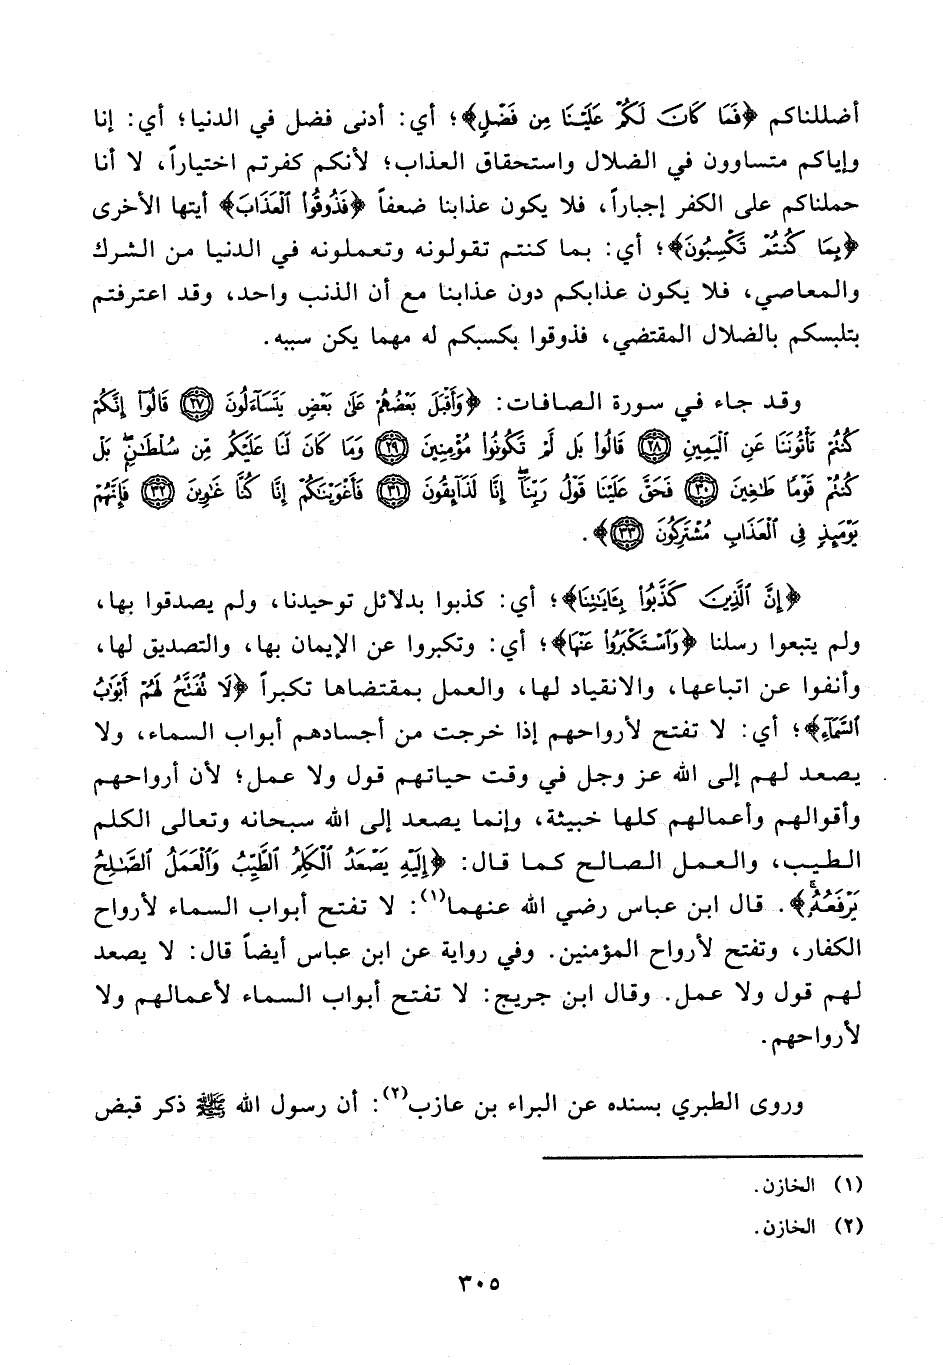 أضللناكم ﴿فَمَا كَانَ لَكُمْ عَلَيْنَا مِن فَضْلٍ﴾؛ أي: أدنى فضل في الدنيا؛ أي: إنا
وإياكم متساوون في الضلال واستحقاق العذاب؛ لأنكم كفرتم اختياراً، لا أنا
حملناكم على الكفر إجباراً، فلا يكون عذابنا ضعفاً ﴿فَذُوقُوا۟ ٱلْعَذَابَ﴾ أيتها الأخرى
﴿بِمَا كُنتُمْ تَكْسِبُونَ﴾؛ أي: بما كنتم تقولونه وتعملونه في الدنيا من الشرك
والمعاصي، فلا يكون عذابكم دون عذابنا مع أن الذنب واحد، وقد اعترفتم
بتلبسكم بالضلال المقتضي، فذوقوا بكسبكم له مهما يكن سببه.
وقد جاء في سورة الصافات: ﴿وَأَقْبَلَ بَعْضُهُمْ عَلَىٰ بَعْضٍ يَتَسَآءَلُونَ ٢٧ قَالُوٓا۟ إِنَّكُمْ
كُنتُمْ تَأْتُونَنَا عَنِ ٱلْيَمِينِ ٢٨ قَالُوا۟ بَل لَّمْ تَكُونُوا۟ مُؤْمِنِينَ ٢٩ وَمَا كَانَ لَنَا عَلَيْكُم مِّن سُلْطَٰنٍۭ ۖ بَلْ
كُنتُمْ قَوْمًا طَٰغِينَ ٣٠ فَحَقَّ عَلَيْنَا قَوْلُ رَبِّنَآ ۖ إِنَّا لَذَآئِقُونَ ٣١ فَأَغْوَيْنَٰكُمْ إِنَّا كُنَّا غَٰوِينَ ٣٢ فَإِنَّهُمْ
يَوْمَئِذٍ فِي ٱلْعَذَابِ مُشْتَرِكُونَ ٣٣﴾.
﴿إِنَّ ٱلَّذِينَ كَذَّبُوا۟ بِـَٔايَٰتِنَا﴾؛ أي: كذبوا بدلائل توحيدنا، ولم يصدقوا بها،
ولم يتبعوا رسلنا ﴿وَٱسْتَكْبَرُوا۟ عَنْهَا﴾؛ أي: وتكبروا عن الإيمان بها، والتصديق لها،
وأنفوا عن اتباعها، والانقياد لها، والعمل بمقتضاها تكبراً ﴿لَا تُفَتَّحُ لَهُمْ أَبْوَٰبُ
ٱلسَّمَآءِ﴾؛ أي: لا تفتح لأرواحهم إذا خرجت من أجسادهم أبواب السماء، ولا
يصعد لهم إلى الله عز وجل في وقت حياتهم قول ولا عمل؛ لأن أرواحهم
وأقوالهم وأعمالهم كلها خبيثة، وإنما يصعد إلى الله سبحانه وتعالى الكلم
الطيب، والعمل الصالح كما قال: ﴿إِلَيْهِ يَصْعَدُ ٱلْكَلِمُ ٱلطَّيِّبُ وَٱلْعَمَلُ ٱلصَّٰلِحُ
يَرْفَعُهُۥ ۚ﴾. قال ابن عباس رضي الله عنهما(١): لا تفتح أبواب السماء لأرواح
الكفار، وتفتح لأرواح المؤمنين. وفي رواية عن ابن عباس أيضاً قال: لا يصعد
لهم قول ولا عمل. وقال ابن جريج: لا تفتح أبواب السماء لأعمالهم ولا
لأرواحهم.
وروى الطبري بسنده عن البراء بن عازب(٢): أن رسول الله ﷺ ذكر قبض
(١) الخازن.
(٢) الخازن.
٣٠٥